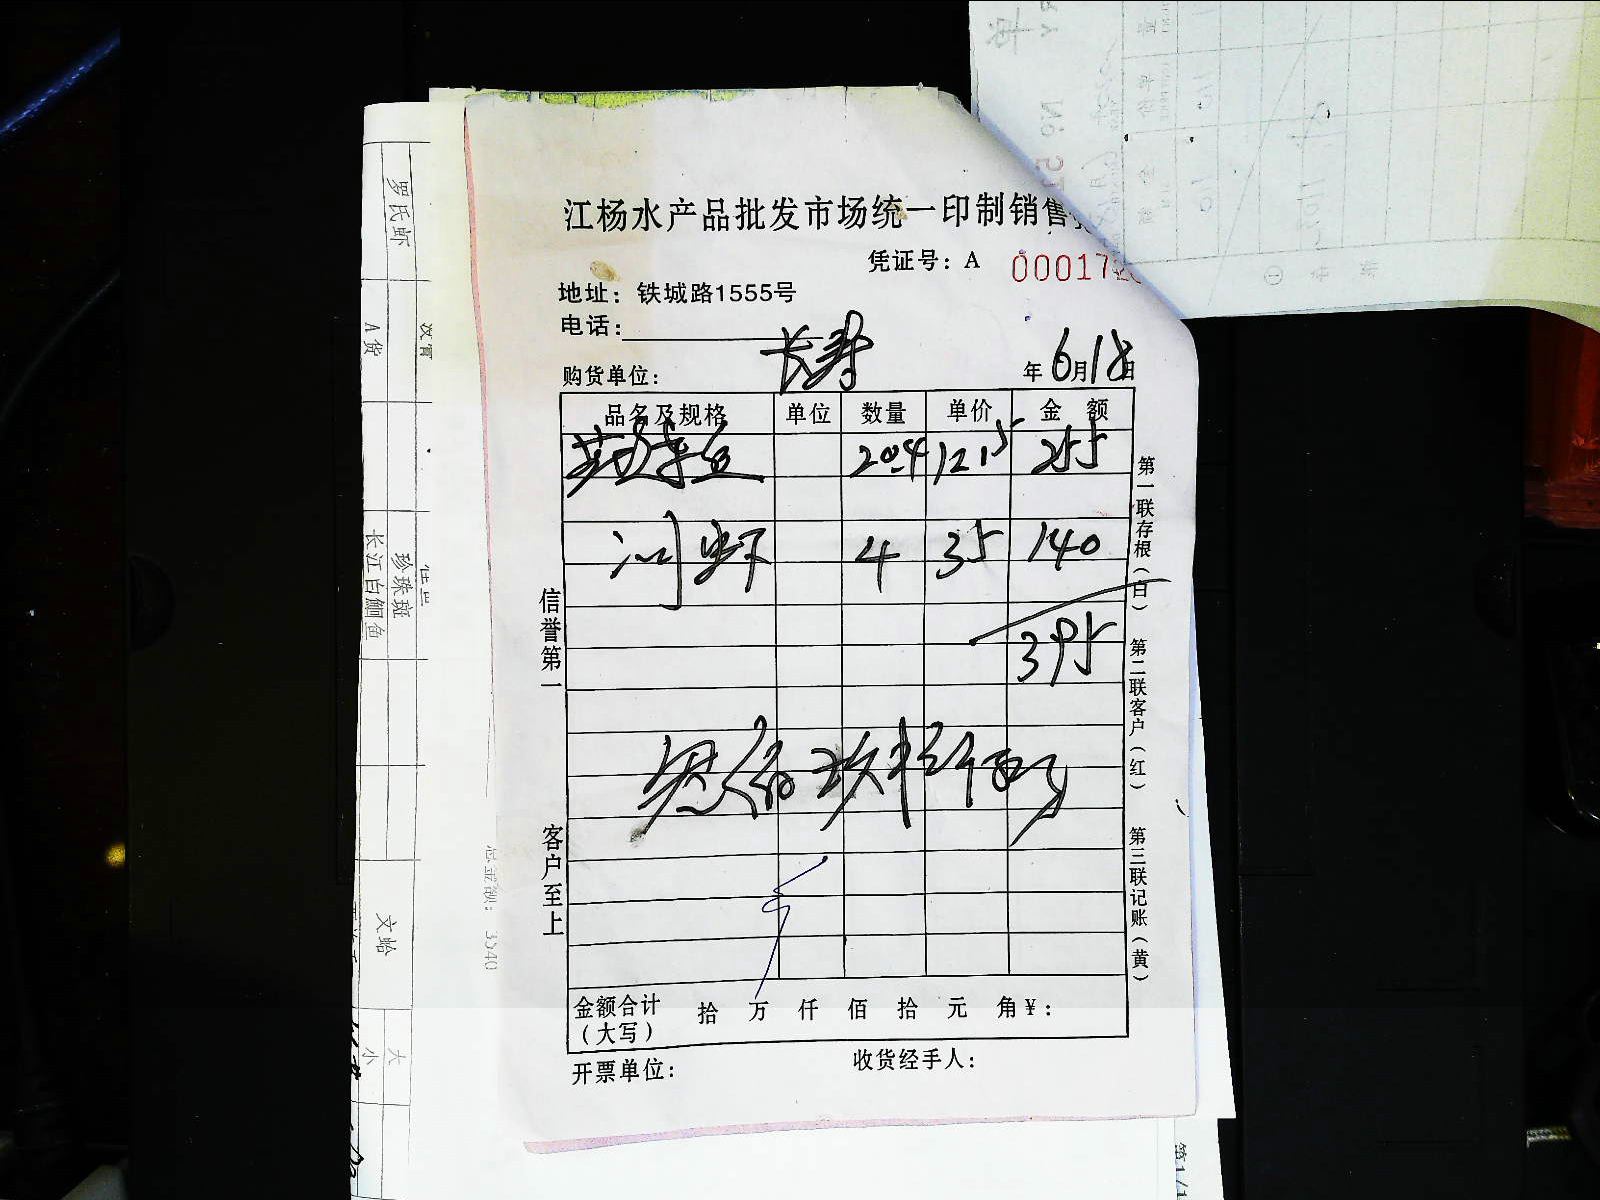 江杨水产品批发市场统一印制销售
凭证号：A 00017
地址：铁城路1555号
电话：
购货单位： 长寿 年6月18日
品名及规格 单位 数量 单价 金额
20.4 12.5 255
河虾 4 35 140
395
叁佰玖拾伍元
金额合计（大写） 拾 万 仟 佰 拾 元 角 ¥：
开票单位： 收货经手人：
信誉第一
客户至上
第一联存根（白）
第二联客户（红）
第三联记账（黄）
罗氏虾
A货
珍珠斑
长江白鮰鱼
文蛤
大
小
总金额：3340